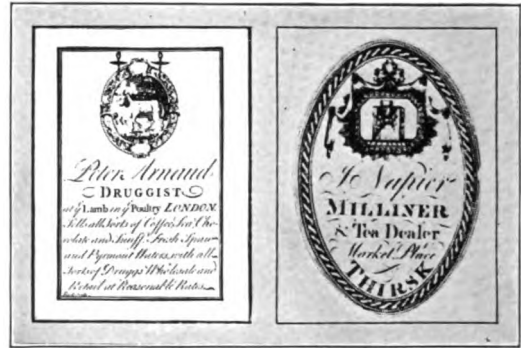 Peter Arnaud
DRUGGIST
at yᵉ Lamb in yᵉ Poultry LONDON.
Sells all Sorts of Coffee, Tea, Cho-
colate and Snuff, Fresh Spaw
and Pyrmont Waters, with all
Sorts of Druggs Wholesale and
Retail at Reasonable Rates.
J Napier
MILLINER
& Tea Dealer
Market Place
THIRSK